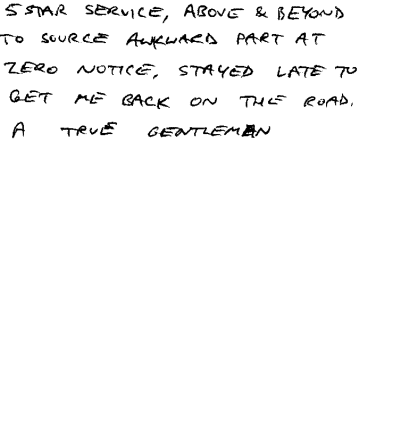 5 STAR SERVICE, ABOVE & BEYOND
TO SOURCE AWKWARD PART AT
ZERO NOTICE, STAYED LATE TO
GET ME BACK ON THE ROAD.
A TRUE GENTLEMAN